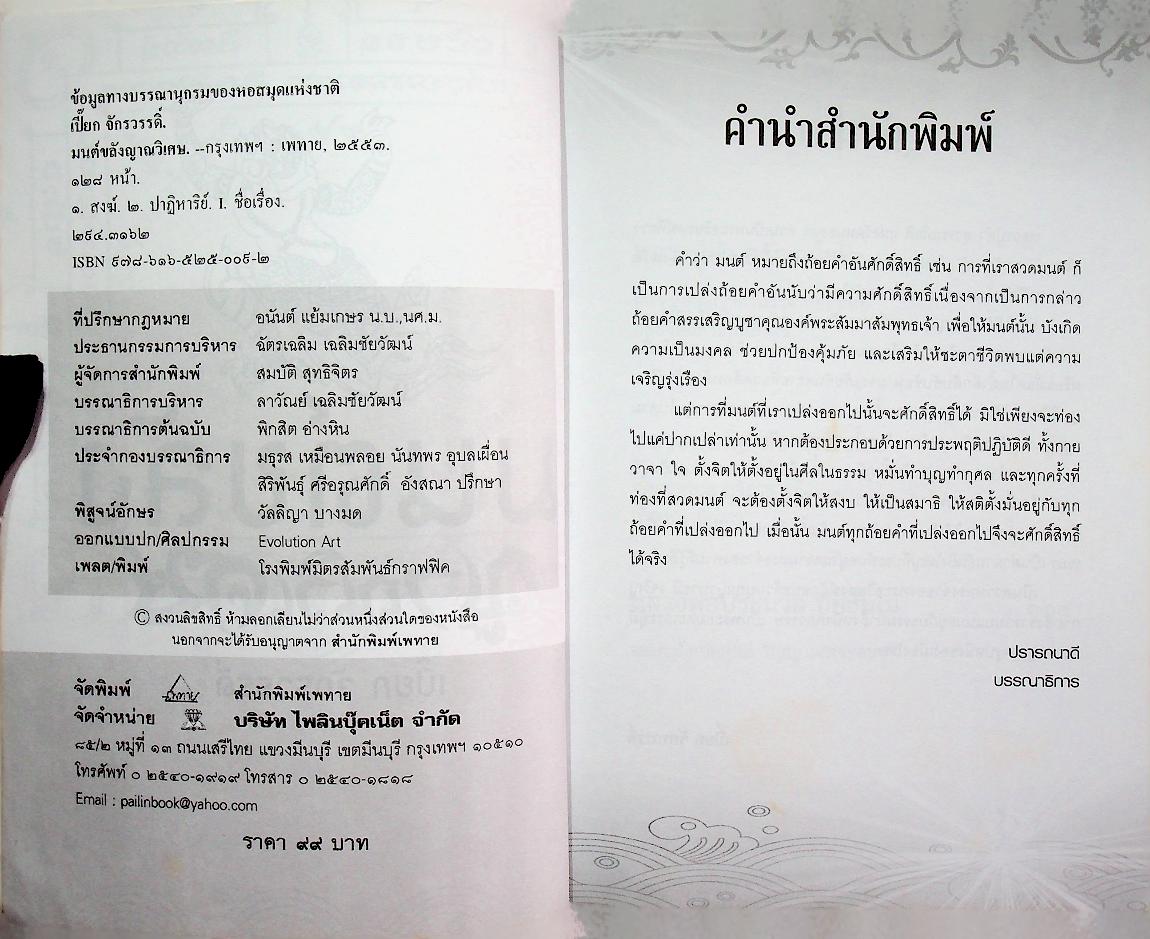 ข้อมูลทางบรรณานุกรมของหอสมุดแห่งชาติ
เปี๊ยก จักรวรรดิ์.
มนต์ขลังญาณวิเศษ. --กรุงเทพฯ : เพทาย, ๒๕๕๓.
๑๒๘ หน้า.
๑. สงฆ์. ๒. ปาฏิหาริย์. I. ชื่อเรื่อง.
๒๙๔.๓๑๖๒
ISBN ๙๗๘-๖๑๖-๕๒๕-๐๐๙-๒
ที่ปรึกษากฎหมาย อนันต์ แย้มเกษร น.บ.,นศ.ม.
ประธานกรรมการบริหาร ฉัตรเฉลิม เฉลิมชัยวัฒน์
ผู้จัดการสำนักพิมพ์ สมบัติ สุทธิจิตร
บรรณาธิการบริหาร ลาวัณย์ เฉลิมชัยวัฒน์
บรรณาธิการต้นฉบับ พิกสิต อ่างหิน
ประจำกองบรรณาธิการ มธุรส เหมือนพลอย นันทพร อุบลเผื่อน
สิริพันธุ์ ศรีอรุณศักดิ์ อังสณา ปรึกษา
พิสูจน์อักษร วัลลิญา บางมด
ออกแบบปก/ศิลปกรรม Evolution Art
เพลต/พิมพ์ โรงพิมพ์มิตรสัมพันธ์กราฟฟิค
© สงวนลิขสิทธิ์ ห้ามลอกเลียนไม่ว่าส่วนหนึ่งส่วนใดของหนังสือ
นอกจากจะได้รับอนุญาตจาก สำนักพิมพ์เพทาย
จัดพิมพ์ เพทาย สำนักพิมพ์เพทาย
จัดจำหน่าย บริษัท ไพลินบุ๊คเน็ต จำกัด
๘๕/๒ หมู่ที่ ๑๓ ถนนเสรีไทย แขวงมีนบุรี เขตมีนบุรี กรุงเทพฯ ๑๐๕๑๐
โทรศัพท์ ๐ ๒๕๔๐-๑๙๑๙ โทรสาร ๐ ๒๕๔๐-๑๘๑๘
Email : pailinbook@yahoo.com
ราคา ๙๙ บาท
คำนำสำนักพิมพ์
คำว่า มนต์ หมายถึงถ้อยคำอันศักดิ์สิทธิ์ เช่น การที่เราสวดมนต์ ก็
เป็นการเปล่งถ้อยคำอันนับว่ามีความศักดิ์สิทธิ์เนื่องจากเป็นการกล่าว
ถ้อยคำสรรเสริญบูชาคุณองค์พระสัมมาสัมพุทธเจ้า เพื่อให้มนต์นั้น บังเกิด
ความเป็นมงคล ช่วยปกป้องคุ้มภัย และเสริมให้ชะตาชีวิตพบแต่ความ
เจริญรุ่งเรือง
แต่การที่มนต์ที่เราเปล่งออกไปนั้นจะศักดิ์สิทธิ์ได้ มิใช่เพียงจะท่อง
ไปแค่ปากเปล่าเท่านั้น หากต้องประกอบด้วยการประพฤติปฏิบัติดี ทั้งกาย
วาจา ใจ ตั้งจิตให้ตั้งอยู่ในศีลในธรรม หมั่นทำบุญทำกุศล และทุกครั้งที่
ท่องที่สวดมนต์ จะต้องตั้งจิตให้สงบ ให้เป็นสมาธิ ให้สติตั้งมั่นอยู่กับทุก
ถ้อยคำที่เปล่งออกไป เมื่อนั้น มนต์ทุกถ้อยคำที่เปล่งออกไปจึงจะศักดิ์สิทธิ์
ได้จริง
ปรารถนาดี
บรรณาธิการ